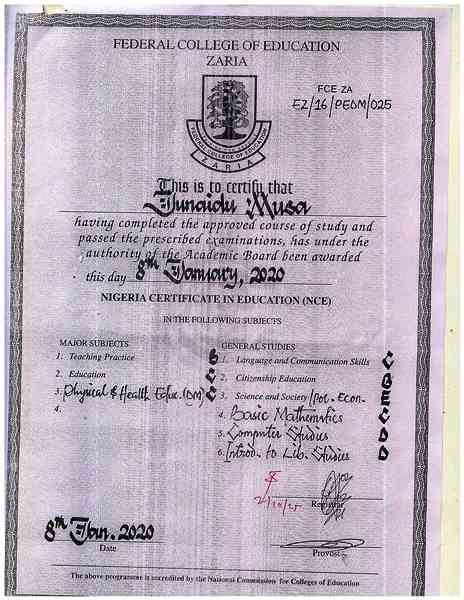 FEDERAL COLLEGE OF EDUCATION
ZARIA
FCE ZA
EZ/16/PEDM/025
FEDERAL COLLEGE OF EDUCATION
ZARIA
This is to certify that
Junaidu Musa
having completed the approved course of study and
passed the prescribed examinations, has under the
authority of the Academic Board been awarded
this day 8th January, 2020
NIGERIA CERTIFICATE IN EDUCATION (NCE)
IN THE FOLLOWING SUBJECTS
MAJOR SUBJECTS
1. Teaching Practice B
2. Education C
3. Physical & Health Educ. (DM) C
4.
GENERAL STUDIES
1. Language and Communication Skills C
2. Citizenship Education B
3. Science and Society/Pol. Econ. E
4. Basic Mathematics C
5. Computer Studies D
6. Introd. to Lib. Studies D
Registrar
8th Jan. 2020
Date
Provost
The above programme is accredited by the National Commission for Colleges of Education